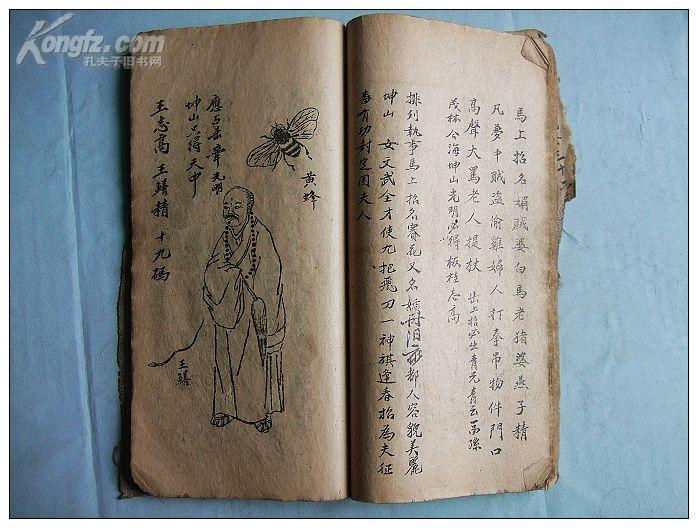 馬上招名媚賊婆白馬老猪婆燕子精
凡夢中賊盜偷雞婦人打拳吊物件門口
高聲大罵老人提杖 出上招必生青元青云
茂林合海坤山光明必得板桂志高
排列執事馬上招名賽花又名
都人容貌美麗
坤山 女文武全才使九把飛刀一神旗逢春招為夫征
有功封定国夫人
黄蜂
應占
元明
坤山必得天中
王志高 王鳝精 十九碼
王鳝
Kongfz.com
孔夫子旧书网